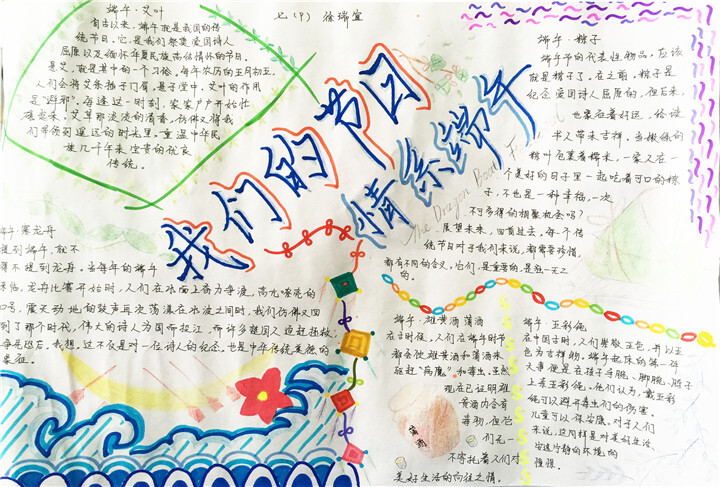 七(9) 徐瑞宣
端午·艾叶
自古以来,端午就是我国的传
统节日。它是我们祭奠爱国诗人
屈原以及缅怀华夏民族高尚情怀的节日。
悬艾,就是其中的一个习俗。每年农历的五月初五,
人们会将艾条插于门眉,悬于堂中。艾叶的作用
是"避邪"。每逢这一时刻,家家户户开始忙
碌起来。艾草那淡淡的清香,仿佛又将我
们带领到遥远的时光里,重温中华民
族几千年来宝贵的优良
传统。
我们的节日
情系端午
The Dragon Boat F
端午·粽子
端午节的代表性物品,应该
就是粽子了。在之前,粽子是
纪念爱国诗人屈原的,但后来,
也象征着好运,给读
书人带来吉祥。当嫩绿的
粽叶包裹着糯米,一家人在一
个美好的日子里一起吃着可口的粽
子,不也是一种幸福,一次
不可多得的相聚机会吗?
展望未来,回首过去,每一个传
统节日对于我们来说,都需要珍惜,
都有不同的含义。它们,是重要的,是独一无二
的。
端午·赛龙舟
提到端午,就不
得不提到龙舟。当每年的端午
来临,龙舟比赛开始时,人们在水面上奋力争渡。高亢嘹亮的
口号,震天动地的鼓声再次荡漾在水波之间时,我们仿佛又回
到了那个时代,伟大的诗人为国而投江,而许多楚国人追赶拯救。
我想,这不仅是对一位诗人的纪念,也是中华传统美德的
象征。
端午·雄黄酒 菖酒
在古时候,人们在端午时节
都会使雄黄酒和菖酒来
驱赶"病魔"和毒虫。虽然
现在已证明雄
黄酒内含有
毒物,但它
们无一
不寄托着人们对
美好生活的向往之情。
端午·五彩绳
在中国古时,人们崇敬五色,并以五
色为吉祥物。端午起床的第一件
大事便是在孩子手腕、脚腕、脖子
上系五彩绳。他们认为,戴五彩
绳可以避开毒虫们的伤害。
儿童可以保安康。对于人们
来说,这同样是对美好生活、
安逸宁静的环境的
憧憬。